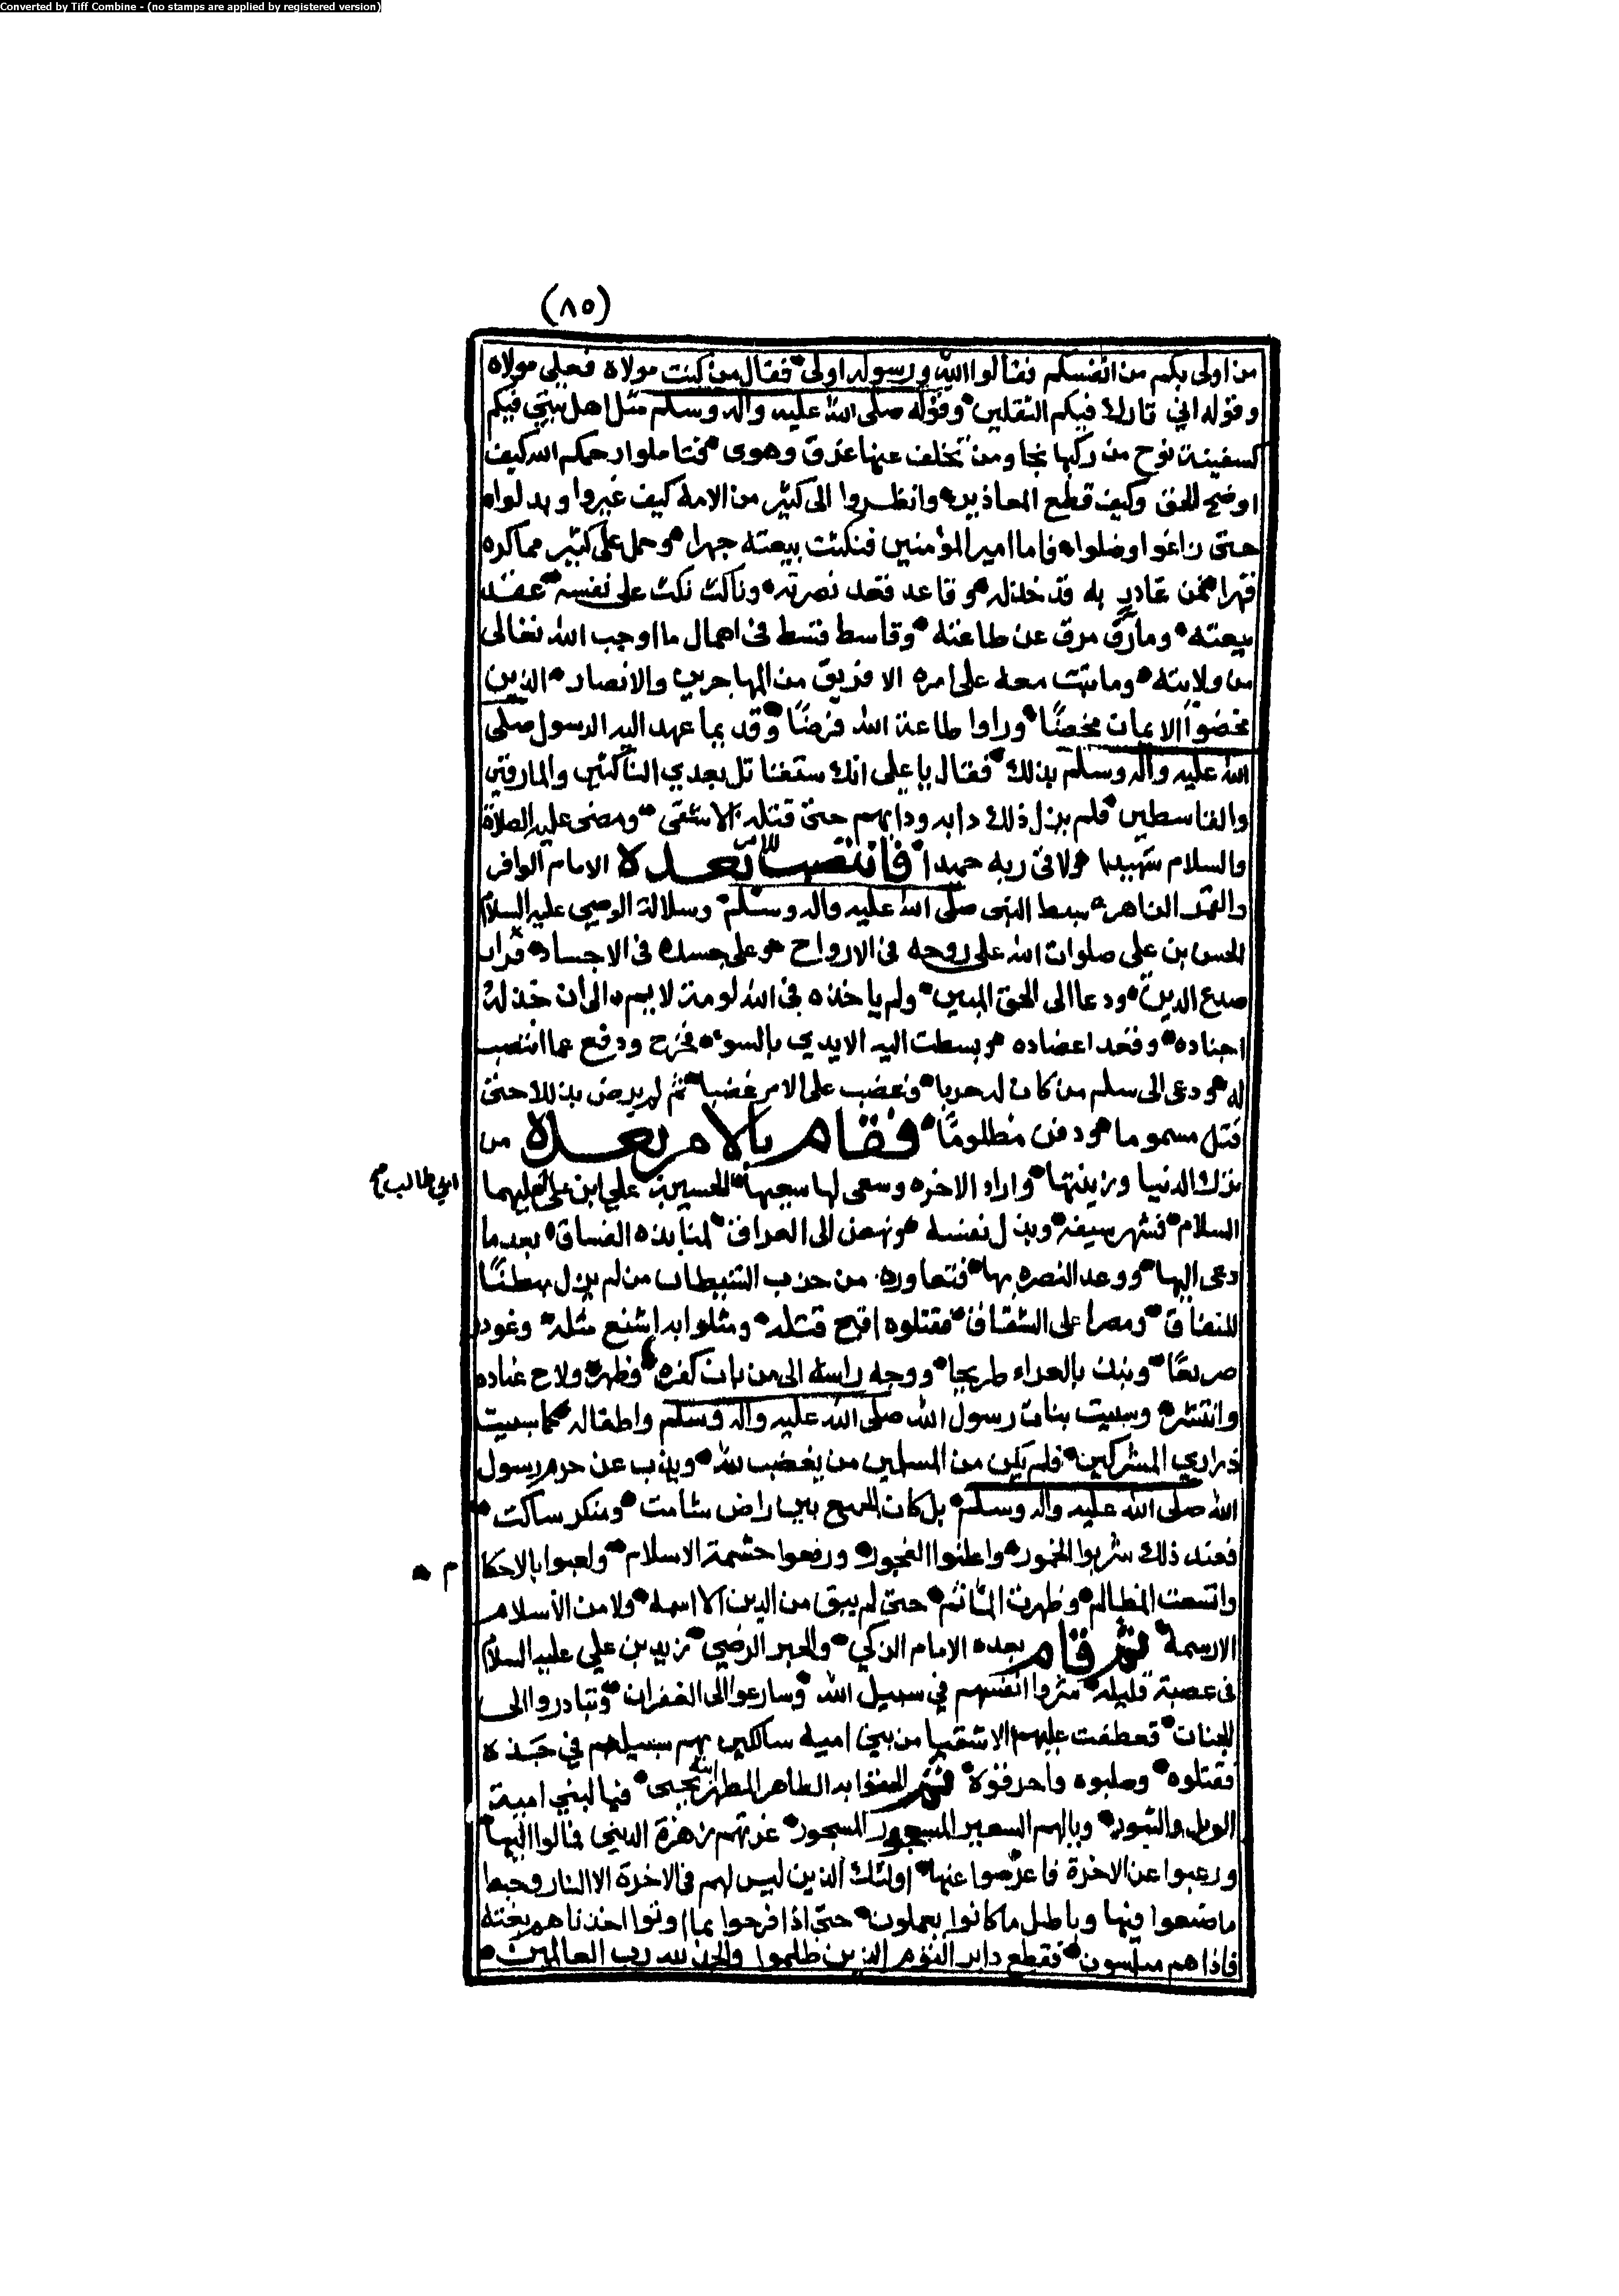 Converted by Tiff Combine - (no stamps are applied by registered version)
(٨٥)
من اولى بكم من انفسكم فقالوا الله ورسوله اولى فقال من كنت مولاه فعلي مولاه
وقوله اني تارك فيكم الثقلين وقوله صلى الله عليه واله وسلم مثل اهل بيتي فيكم
كسفينة نوح من ركبها نجا ومن تخلف عنها غرق وهوى فتاملوا رحمكم الله كيف
اوضح الحق وكيف قطع المعاذير وانظروا الى كثير من الامة كيف غيروا وبدلوا
حتى زاغوا وضلوا فاما امير المؤمنين فنكثت بيعته جهرا وحمل على كثير مما كره
قهرا فمن غادر به قد خذله وقاعد فقعد نصرته وناكث نكث على نفسه عقد
بيعته ومارق مرق عن طاعته وقاسط قسط في اهمال ما اوجب الله تعالى
من ولايته وما ثبت معه على امره الا فريق من المهاجرين والانصار الذين
محضوا الايمان محضًا وراوا طاعة الله فرضًا وقد بما عهد اليه الرسول صلى
الله عليه واله وسلم بذلك فقال يا علي انك ستقاتل بعدي الناكثين والمارقين
والقاسطين فلم يزل ذلك دابه ودابهم حتى قتله الاشقى ومضى عليه الصلاة
والسلام شهيدا ولاقى ربه حميدا فانتصب للامر بعده الامام الوافر
والقمر الزاهر سبط النبي صلى الله عليه واله وسلم وسلالة الوصي عليه السلام
الحسن بن علي صلوات الله على روحه في الارواح وعلى جسده في الاجساد فراب
صدع الدين ودعا الى الحق المبين ولم ياخذه في الله لومة لايم الى ان خذله
اجناده وفقد اعضاده وبسطت اليه الايدي بالسوء فخرج ودفع عما انتصب
له ودعى الى سلم من كان له حربا وغصب على الامر غصبا ثم لم يرض بذلك حتى
قتل مسموما ودفن مظلومًا فقام بالامر بعده من
ترك الدنيا وزينتها واراد الاخرة وسعى لها سعيها الحسين بن علي ابن عليهما
ابي طالب
السلام فشهر سيفه وبذل نفسه ونهض الى العراق لمنابذة الفساق بعد ما
دعى اليها ووعد النصره بها فتعاوره من حزب الشيطان من لم يزل مبطنًا
للنفاق ومصرا على الشقاق فقتلوه اقبح قتله ومثلوا به اشنع مثله وغودر
صريعًا ونبذ بالعراء طريحا ووجه راسه الى من بان كفره فظهر ولاح عناده
وانتشر وسبيت بنات رسول الله صلى الله عليه واله وسلم واطفاله كما سبيت
ذراري المشركين فلم يكن من المسلمين من يغضب لله ويذب عن حرم رسول
الله صلى الله عليه واله وسلم بل كان الجميع بين راض شامت ومنكر ساكت
فعند ذلك شربوا الخمور واعلنوا الفجور ورفعوا حشمة الاسلام ولعبوا بالاحكا م
واتسعت المظالم وظهرت المآثم حتى لم يبق من الدين الا اسمه ولا من الأسلام
الا رسمه ثم قام بعده الامام الزكي والحبر الرضي زيد بن علي عليه السلام
في عصبة قليله شروا انفسهم في سبيل الله وسارعوا الى الغفران وتبادروا الى
الجنات فعطفت عليهم الاشقيا من بني امية سالكين بهم سبيلهم في جده
فقتلوه وصلبوه واحرقوه ثم الحقوا به الطاهر المطهر ابنه يحيى فيا لبني امية
الويل والثبور ويالهم السعير المسجور المسجور غرتهم زهرة الدنيى فمالوا اليها
ورغبوا عن الاخرة فاعرضوا عنها اولئك الذين ليس لهم في الاخرة الا النار وحبط
ما صنعوا فيها وباطل ما كانوا يعملون حتى اذا فرحوا بما اوتوا اخذناهم بغتة
فاذا هم مبلسون فقطع دابر القوم الذين ظلموا والحمد لله رب العالمين